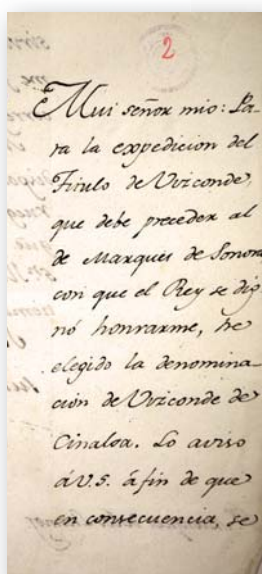 2
Mui señor mio: Pa-
ra la expedicion del
Titulo de Vizconde,
que debe preceder al
de Marqués de Sonora
con que el Rey se dig
nó honrarme, he
elegido la denomina-
cion de Vizconde de
Cinaloa. Lo aviso
á V.S. á fin de que
en consecuencia, se